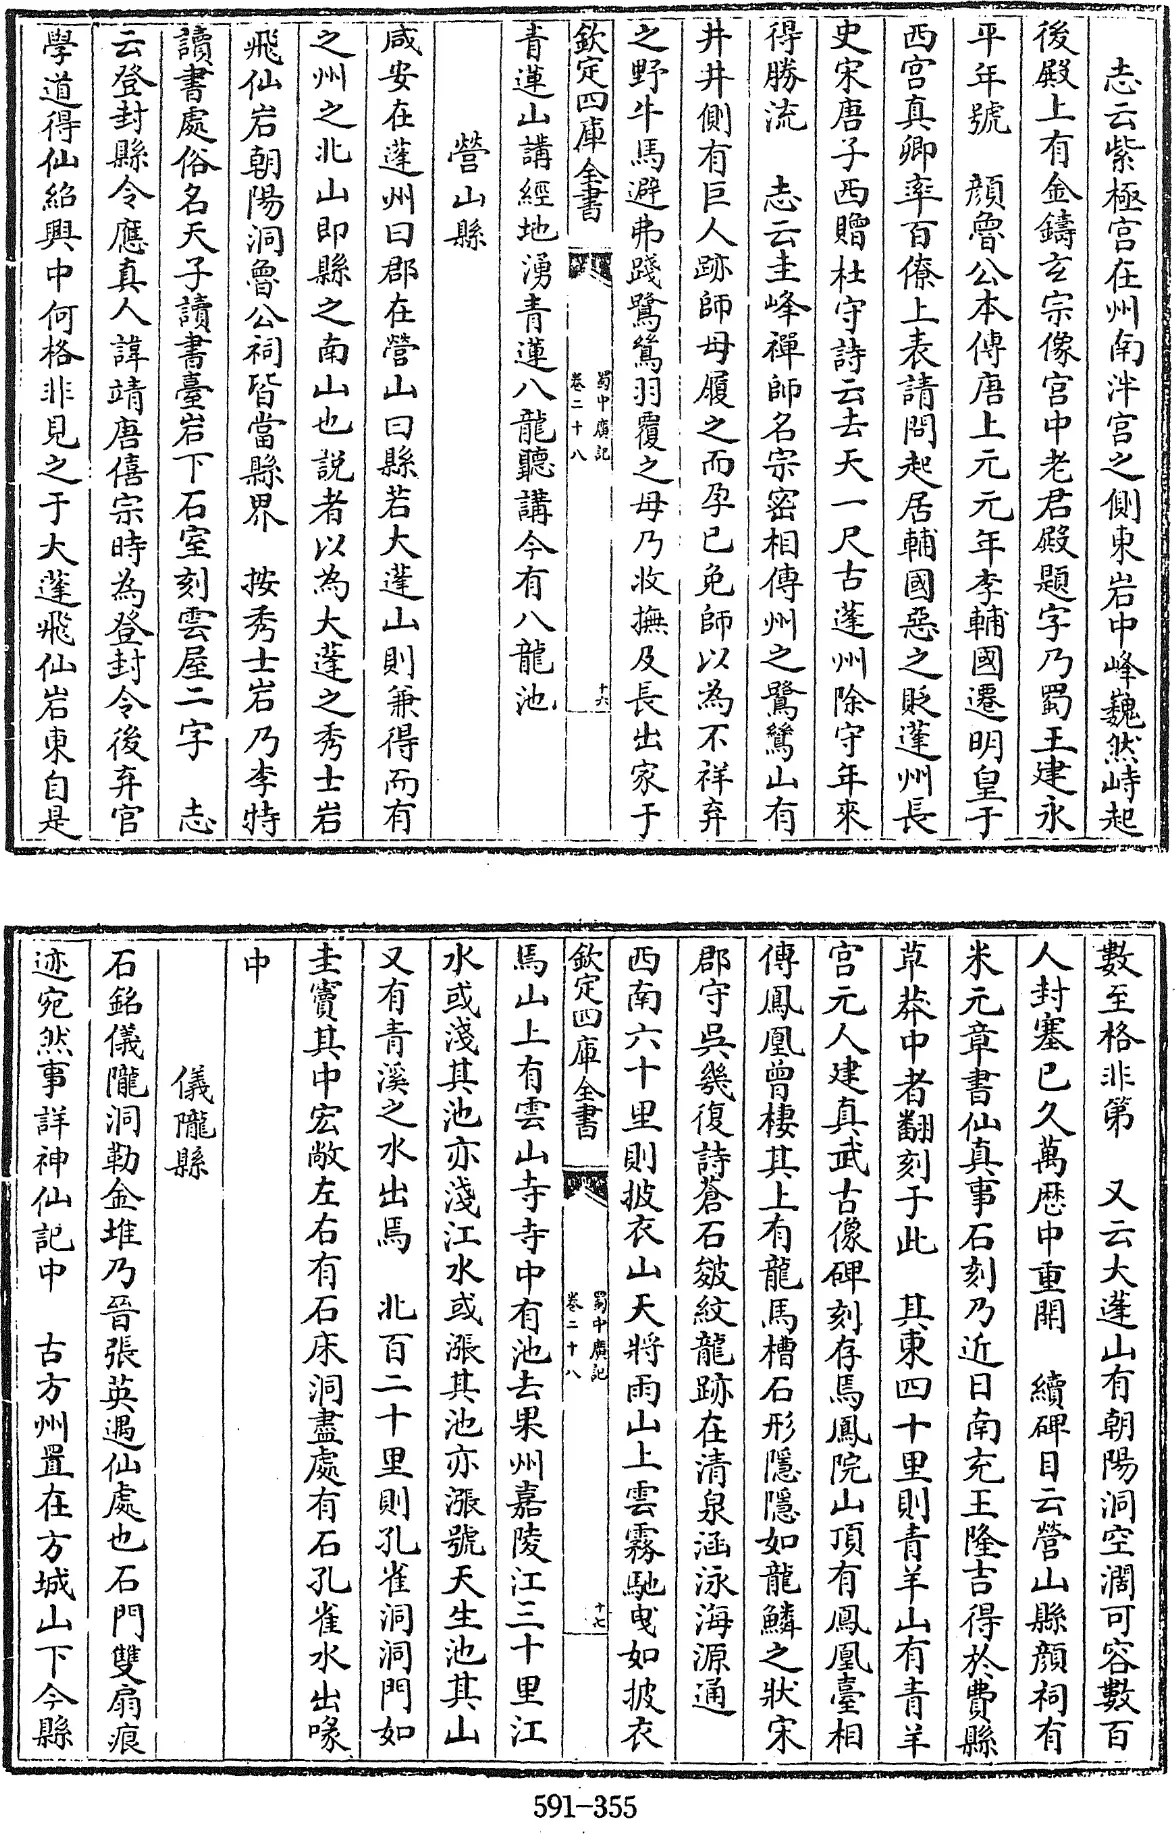 志云紫極宫在州南泮宫之側東岩中峰巍然峙起
後殿上有金鑄玄宗像宫中老君殿題字乃蜀王建永
平年號　顔魯公本傳唐上元元年李輔國遷明皇于
西宫真卿率百僚上表請問起居輔國惡之貶蓬州長
史宋唐子西贈杜守詩云去天一尺古蓬州除守年來
得勝流　志云圭峰禪師名宗密相傳州之鷺鷥山有
井井側有巨人跡師母履之而孕已免師以為不祥弃
之野牛馬避弗踐鷺鷥羽覆之母乃收撫及長出家于
欽定四庫全書
蜀中廣記
卷二十八
十六
青蓮山講經地湧青蓮八龍聽講今有八龍池
營山縣
咸安在蓬州曰郡在營山曰縣若大蓬山則兼得而有
之州之北山即縣之南山也説者以為大蓬之秀士岩
飛仙岩朝陽洞魯公祠皆當縣界　按秀士岩乃李特
讀書處俗名天子讀書臺岩下石室刻雲屋二字　志
云登封縣令應真人諱靖唐僖宗時為登封令後弃官
學道得仙紹興中何格非見之于大蓬飛仙岩東自是
數至格非第　又云大蓬山有朝陽洞空濶可容數百
人封塞已久萬歴中重開　續碑目云營山縣顔祠有
米元章書仙真事石刻乃近日南充王隆吉得於費縣
草莽中者翻刻于此　其東四十里則青羊山有青羊
宫元人建真武古像碑刻存焉鳳院山頂有鳳凰臺相
傳鳳凰曾棲其上有龍馬槽石形隱隱如龍鱗之狀宋
郡守吳幾復詩蒼石皴紋龍跡在清泉涵泳海源通
西南六十里則披衣山天將雨山上雲霧馳曳如披衣
欽定四庫全書
蜀中廣記
卷二十八
十七
馬山上有雲山寺寺中有池去果州嘉陵江三十里江
水或淺其池亦淺江水或漲其池亦漲號天生池其山
又有青溪之水出焉　北百二十里則孔雀洞洞門如
圭竇其中宏敞左右有石床洞盡處有石孔雀水出喙
中
儀隴縣
石銘儀隴洞勒金堆乃晉張英遇仙處也石門雙扇痕
迹宛然事詳神仙記中　古方州置在方城山下今縣
591-355